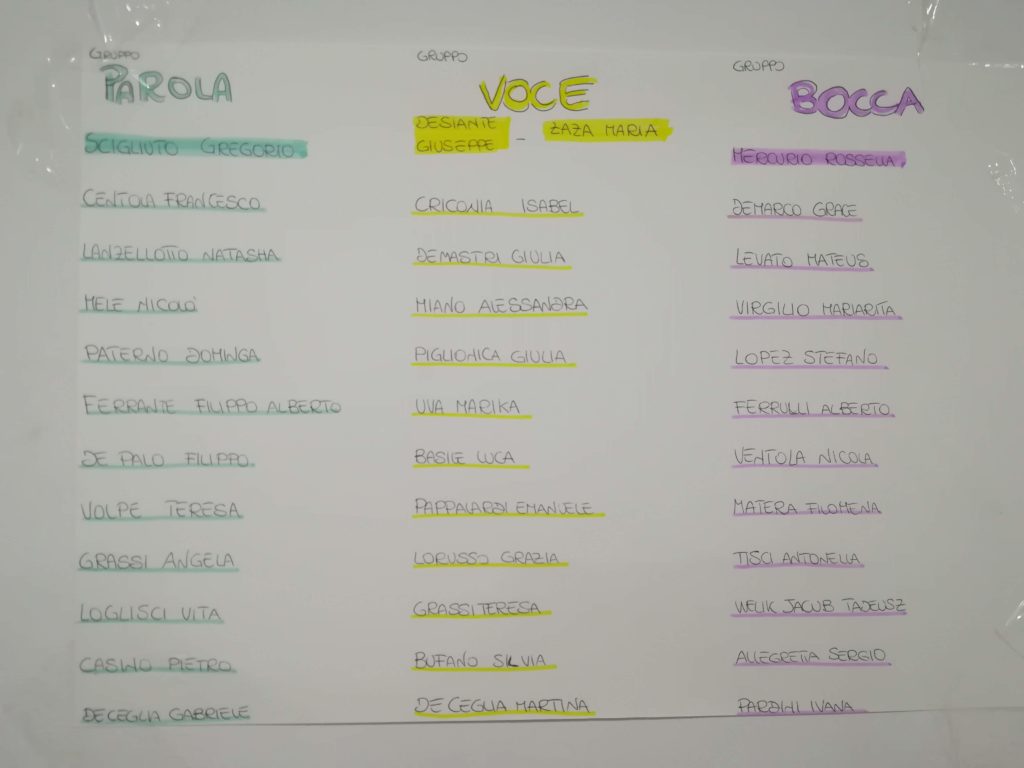 GRUPPO
PAROLA
SCIGLIUTO GREGORIO
CENTOLA FRANCESCO
LANZELLOTTO NATASHA
MELE NICOLÒ
PATERNO DOMINGA
FERRANTE FILIPPO ALBERTO
DE PALO FILIPPO
VOLPE TERESA
GRASSI ANGELA
LOGLISCI VITA
CASINO PIETRO
DECEGLIA GABRIELE
GRUPPO
VOCE
DESIANTE
GIUSEPPE - ZAZA MARIA
CRICONIA ISABEL
DEMASTRI GIULIA
MIANO ALESSANDRA
PIGLIONICA GIULIA
UVA MARIKA
BASILE LUCA
PAPPALARDI EMANUELE
LORUSSO GRAZIA
GRASSI TERESA
BUFANO SILVIA
DE CEGLIA MARTINA
GRUPPO
BOCCA
MERCURIO ROSSELLA
DEMARCO GRACE
LEVATO MATEUS
VIRGILIO MARIARITA
LOPEZ STEFANO
FERRULLI ALBERTO
VENTOLA NICOLA
MATERA FILOMENA
TISCI ANTONELLA
WELIK JACUB TADEUSZ
ALLEGRETTA SERGIO
PARDINI IVANA